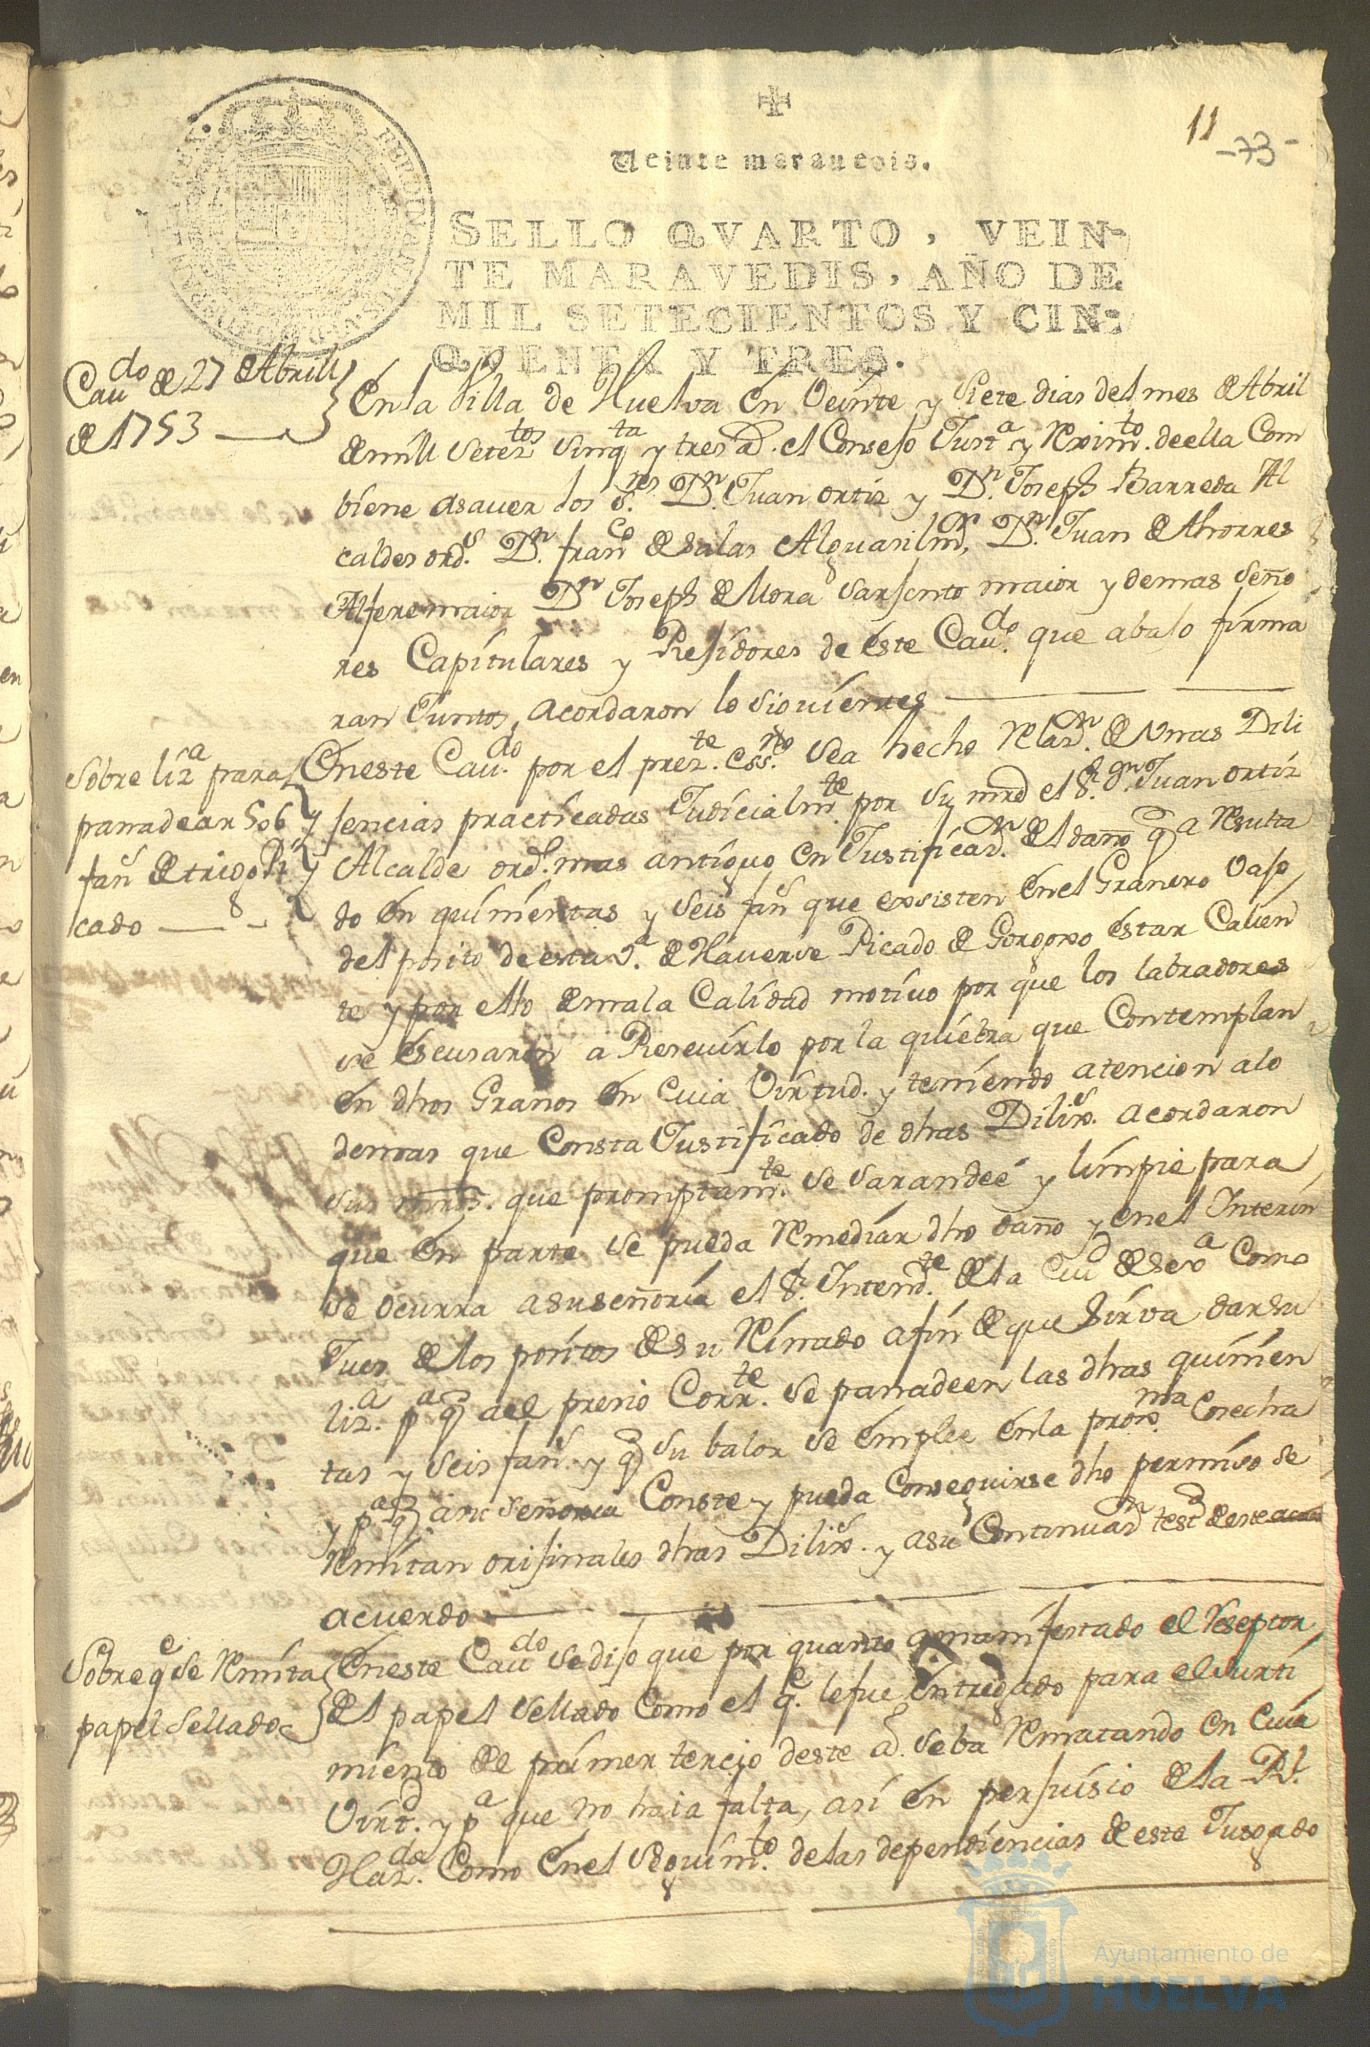 11
-73-
Veinte maravedis.
SELLO QVARTO, VEIN-
TE MARAVEDIS, AÑO DE
MIL SETECIENTOS Y CIN-
QUENTA Y TRES.
Cavdo de 27 de Abrill
de 1753
En la Villa de Huelva en Veinte y Siete dias del mes de Abril
de mill Seteztos Sinqta y tres as. el Conselo Justa y Reximto. de ella Com
biene asaver los Sres. Dn. Juan ortiz y Dn. Joseph Barreda Al
caldes ords. Dn. franco de Salas Alguasil mr, Dn. Juan de Athorres
Alferemaior Dn Joseph de Mora Sarsento maior y demas Seño
res Capitulares y Residores de este Cavdo. que abaso firma
ran Juntos, acordaron lo Siguientes
Sobre liza para
panadear 506
fans de trigo Pi
cado
En este Cavdo. por el prezte. essno. Sea hecho Relazn. de Unas Dili
sencias practicadas Judicialmte. por Su mrd el Sr. Dn Juan ortiz
Alcalde ordo. mas antiguo en Justificazn. del daño q a Resulta
do en quinientas y Seis fans que exsisten en el Granero vaso
del posito de esta Va. de Haverse Picado de Gorgoxo estar Calien
te y por ello de mala Calidad motivo por que los labradores
se escusaron a Resevirlo por la quiebra que Contemplan
en dhos Granos en Cuia Virtud. y teniendo atencion alo
demas que Consta Justificado de dhas Dilixs. acordaron
sus mrds. que promptamte. se Sarandeé y limpie para
que en parte se pueda Remediar dho daño y en el Interin
Se Ocurra a su Señoria el Sr. Intendte. de la Ciud de Seva Como
Juez de los positos de Su Reinado a fin de que Sirva dar Su
liza. pa q a el presio Corrte. se panadeen las dhas quinien
tas y Seis fans. y q Su balor se emplee en la proxma Cosecha
y pa q a su Señoria Conste y pueda Conseguirse dho permiso se
Remitan orisinales dhas Dilixs. y a su Continuazn testo de este
acuerdo
Sobre qe se Remita
papel Sellado
En este Cavdo Se diso que por quanto a manifestado el Reseptor
del papel Sellado Como el qe. le fue entregado para el Surti
miento de el primer tercio deste as. Se ba Rematando en Cuia
Virtd. y pa que no haia falta, asi en persuisio de la Rl.
Hazda. Como en el Seguimto. de las dependiencias de este Jusgado
Ayuntamiento de
HUELVA